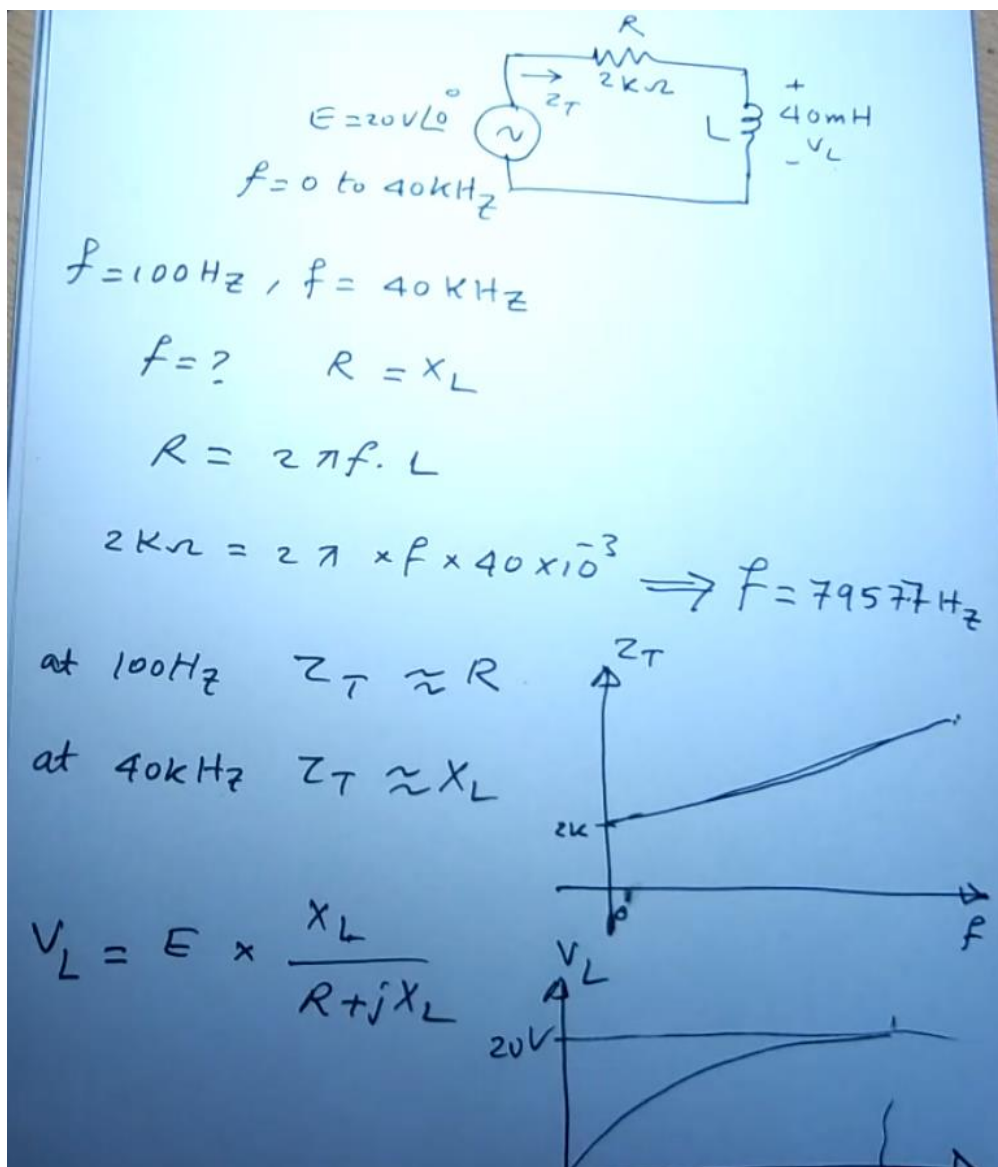 R
2KΩ
Z_T
E=20V∠0°
L
+
40mH
- V_L
f=0 to 40KHz
f=100Hz, f= 40KHz
f=? R = X_L
R = 2πf. L
2KΩ = 2π ×f × 40×10⁻³ ⟹ f=79577Hz
at 100Hz Z_T ≈ R
at 40KHz Z_T ≈ X_L
Z_T
2K
f
V_L = E × X_L / R+jX_L
V_L
20V